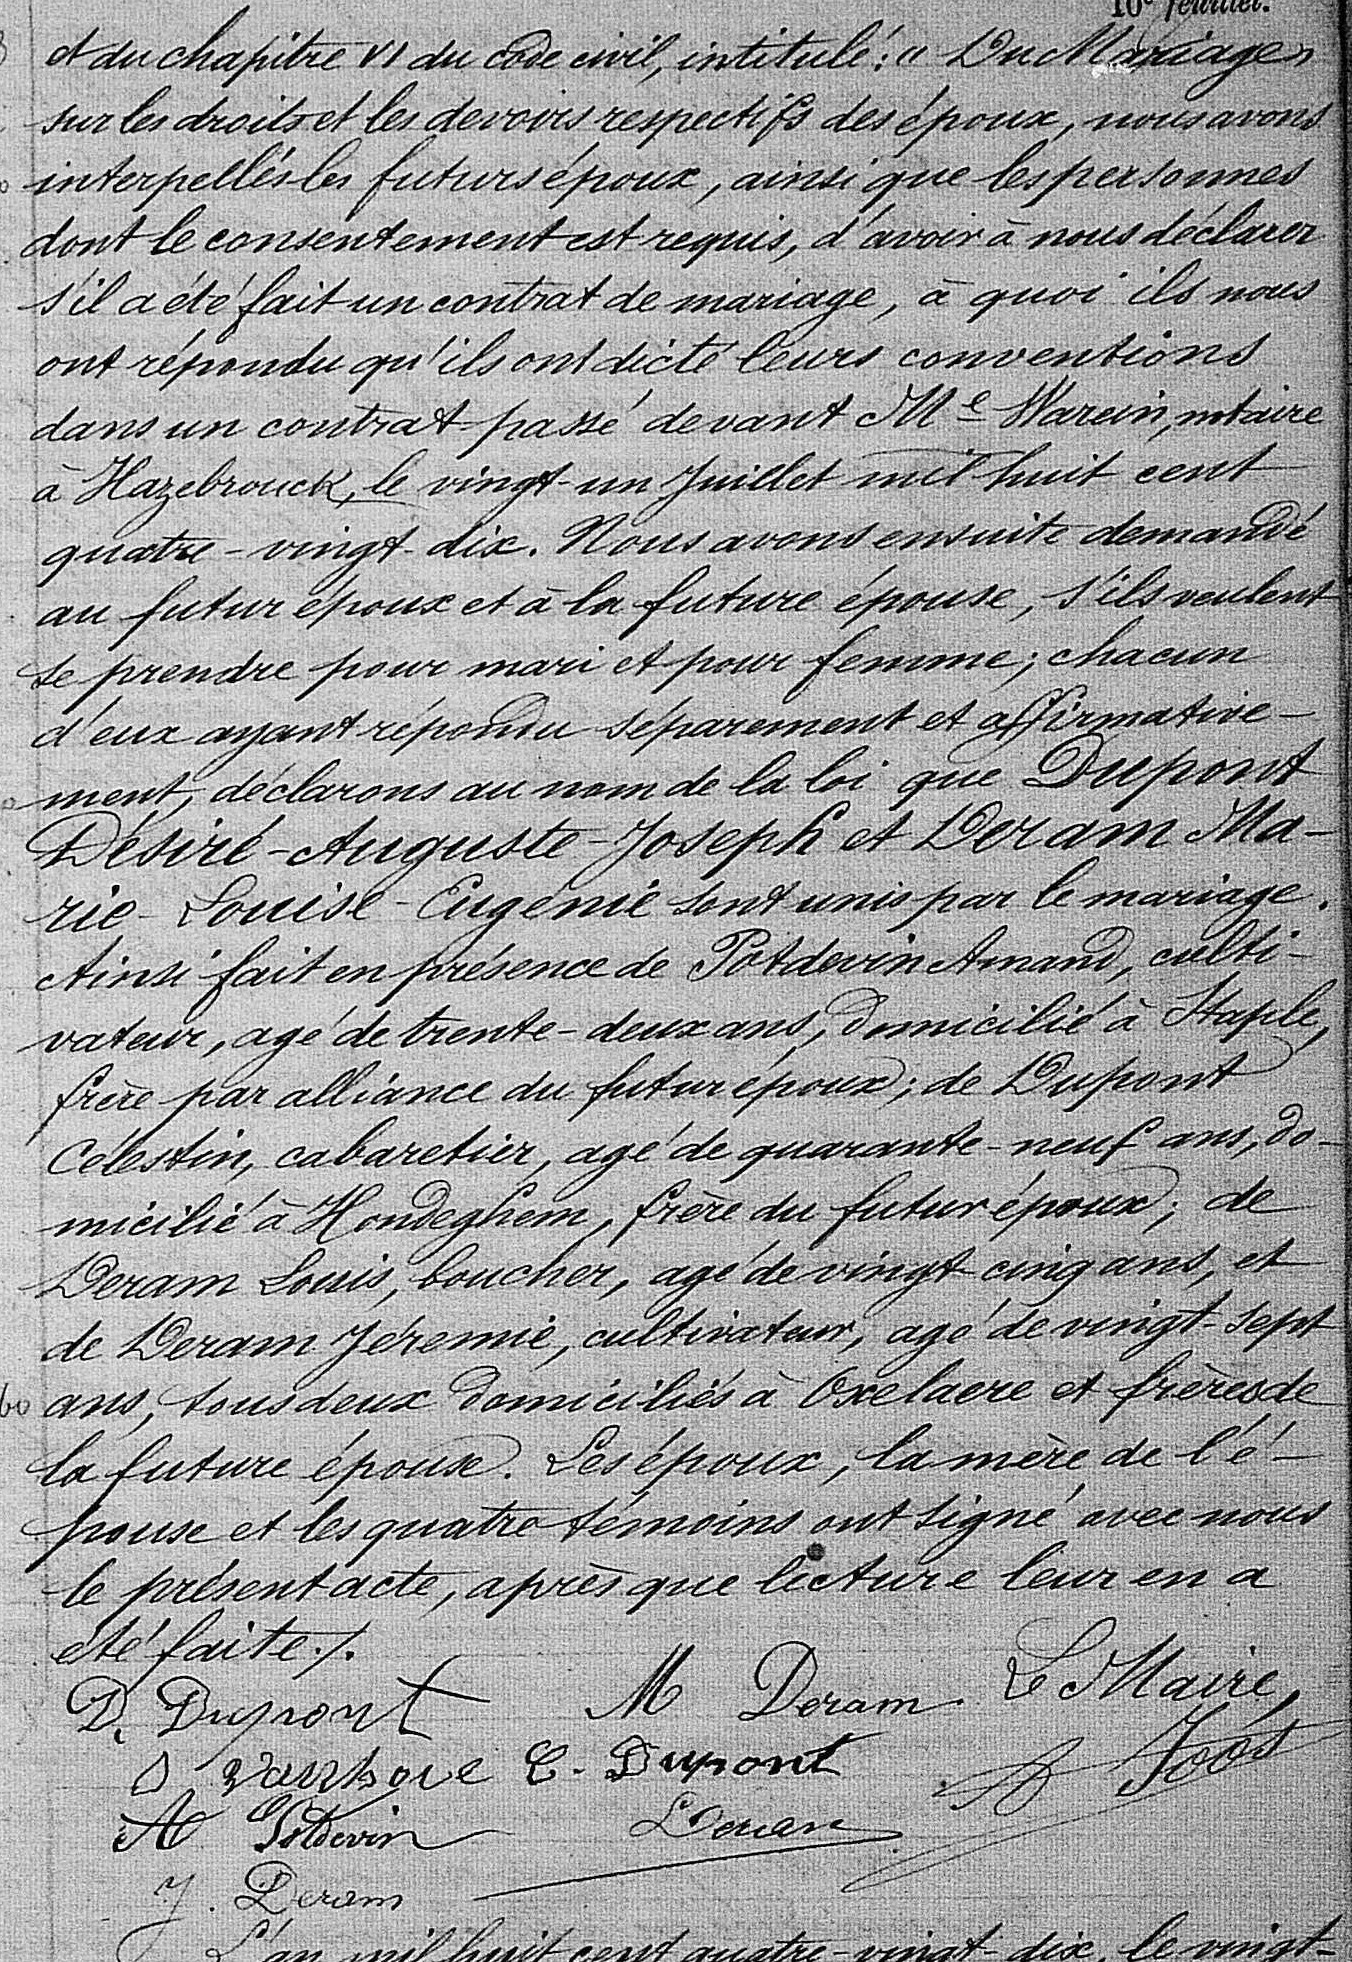 10e feuillet.
et du chapitre VI du code civil, intitulé: " Du Mariage "
sur les droits et les devoirs respectifs des époux, nous avons
interpellés les futurs époux, ainsi que les personnes
dont le consentement est requis, d'avoir à nous déclarer
s'il a été fait un contrat de mariage, à quoi ils nous
ont répondu qu'ils ont dicté leurs conventions
dans un contrat passé devant Me Warein, notaire
à Hazebrouck, le vingt-un Juillet mil huit cent
quatre-vingt-dix. Nous avons ensuite demandé
au futur époux et à la future épouse, s'ils veulent
se prendre pour mari et pour femme; chacun
d'eux ayant répondu séparement et affirmative-
ment, déclarons au nom de la loi que Dupont
Désiré-Auguste-Joseph et Deram Ma-
rie-Louise-Eugénie sont unis par le mariage.
Ainsi fait en présence de Potdevin Amand, culti-
vateur, agé de trente-deux ans, domicilié à Staple,
frère par alliance du futur époux; de Dupont
Célestin, cabaretier, agé de quarante-neuf ans, do-
micilié à Hondeghem, frère du futur époux; de
Deram Louis, boucher, agé de vingt cinq ans, et
de Deram Jérémie, cultivateur, agé de vingt-sept
ans, tous deux domiciliés à Oxelaere et frères de
la future épouse. Les époux, la mère de l'é-
pouse et les quatre témoins ont signé avec nous
le présent acte, après que lecture leur en a
été faite./.
D. Dupont M Deram Le Maire,
C. Dupont Joos
A Potdevin L Deram
J. Deram
L'an mil huit cent quatre-vingt-dix, le vingt-